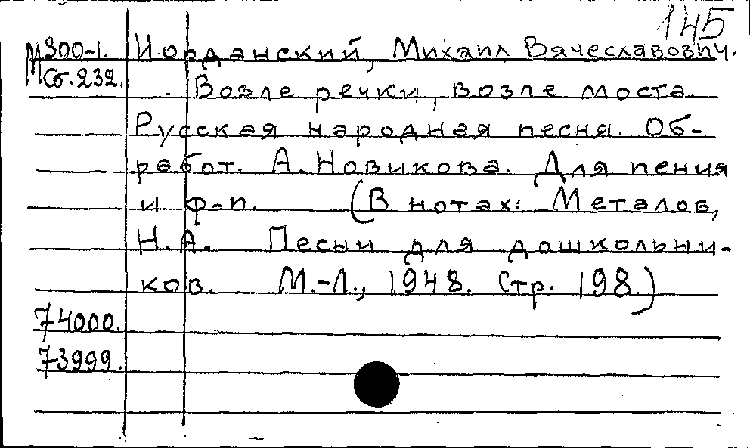 145
М300-1. Иорданский, Михаил Вячеславович.
Сб.232. Возле речки, возле моста.
Русская народная песня. Об-
работ. А. Новикова. Для пения
и ф-п. (В нотах: Металов,
Н.А. Песни для дошкольни-
ков. М.-Л., 1948. Стр. 198.)
74000.
73999.